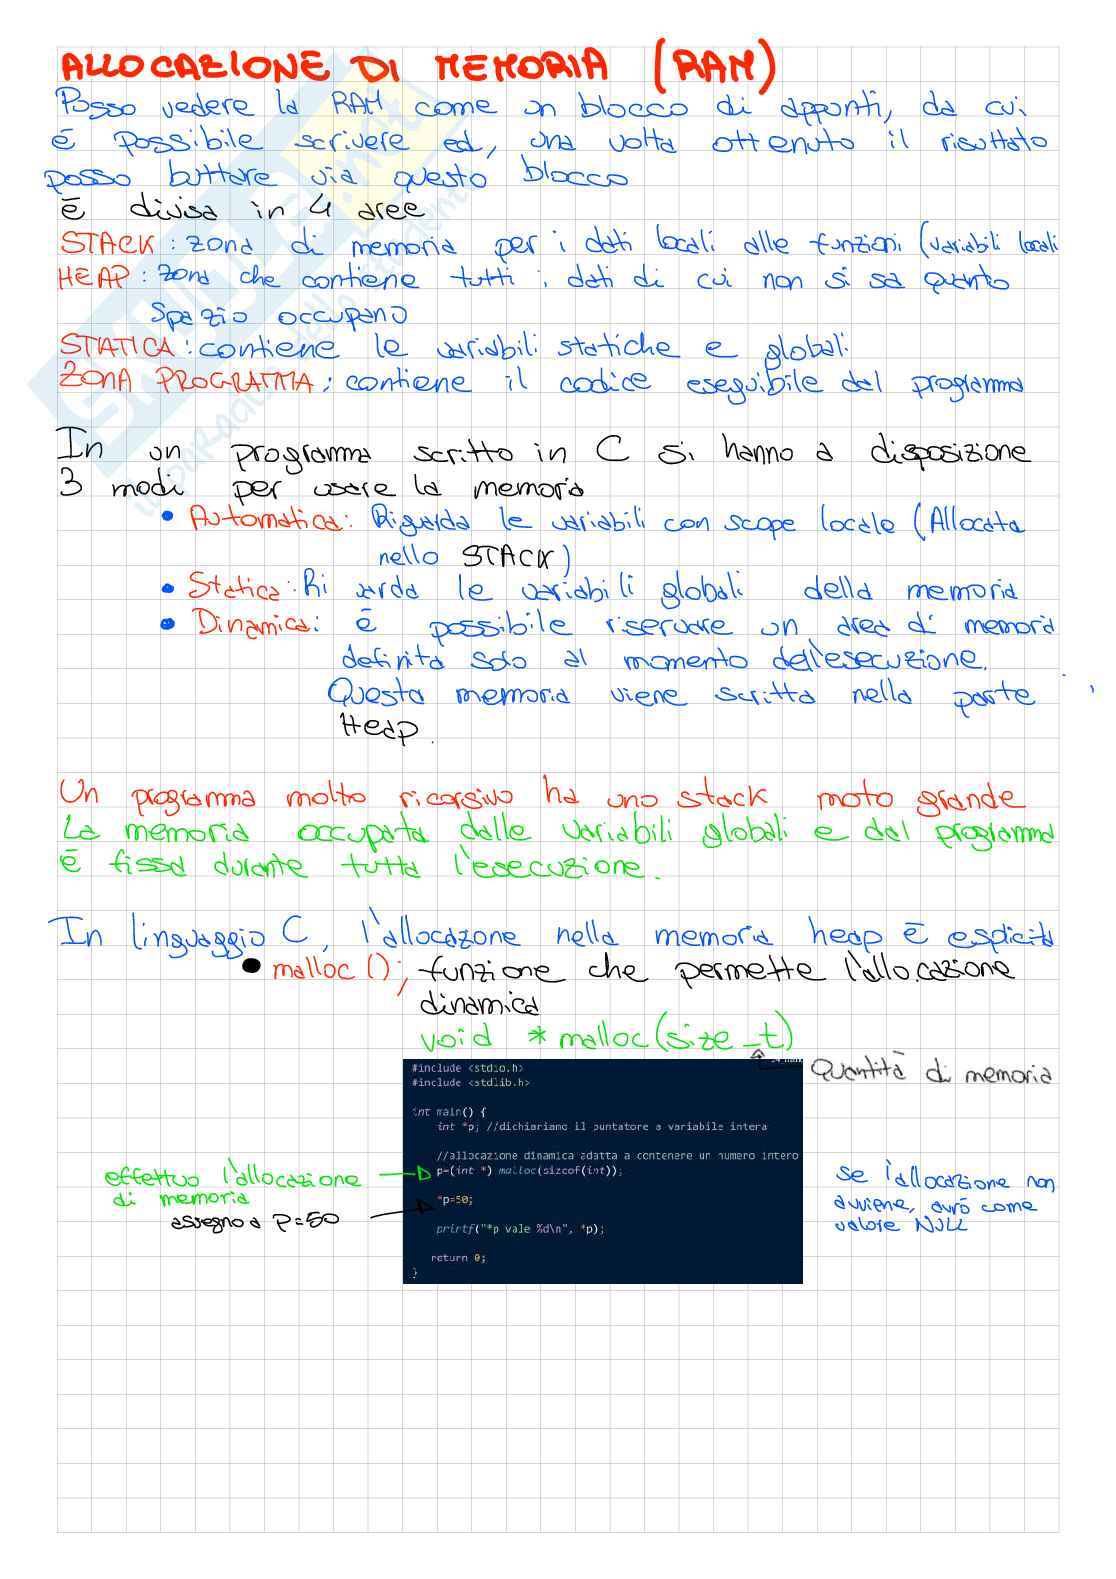 ALLOCAZIONE DI MEMORIA (RAM)
Posso vedere la RAM come un blocco di appunti, da cui
è possibile scrivere ed, una volta ottenuto il risultato
posso buttare via questo blocco
è divisa in 4 aree
STACK : zona di memoria per i dati locali alle funzioni (variabili locali
HEAP : zona che contiene tutti i dati di cui non si sa quanto
spazio occupano
STATICA : contiene le variabili statiche e globali
ZONA PROGRAMMA : contiene il codice eseguibile del programma
In un programma scritto in C si hanno a disposizione
3 modi per usare la memoria
• Automatica: Riguarda le variabili con scope locale (Allocata
nello STACK)
• Statica: Ri varda le variabili globali della memoria
• Dinamica: è possibile riservare un area di memoria
definita solo al momento dell'esecuzione.
Questa memoria viene scritta nella parte
Heap.
Un programma molto ricorsivo ha uno stack moto grande
La memoria occupata dalle variabili globali e dal programma
è fissa durante tutta l'esecuzione.
In linguaggio C, l'allocazone nella memoria heap è esplicita
• malloc (); funzione che permette l'allocazione
dinamica
void * malloc(size_t)
Quantità di memoria
#include <stdio.h>
#include <stdlib.h>
int main() {
int *p; //dichiariamo il puntatore a variabile intera
//allocazione dinamica adatta a contenere un numero intero
p=(int *) malloc(sizeof(int));
*p=50;
printf("*p vale %d\n", *p);
return 0;
}
effettuo l'allocazione
di memoria
assegno a P=50
se l'allocazione non
avviene, avrò come
valore NULL